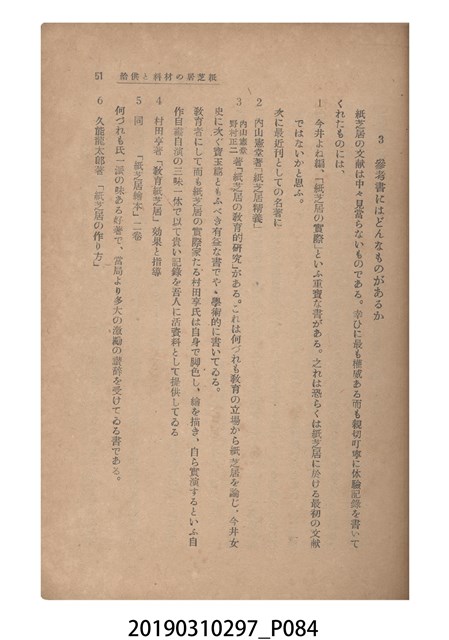 紙芝居の材料と供給
51
3 參考書にはどんなものがあるか
紙芝居の文献は中々見當らないものである。幸ひに最も權威ある而も親切叮寧に体驗記錄を書いて
くれたものには、
1 今井よね編、「紙芝居の實際」といふ重寶な書がある。之れは恐らくは紙芝居に於ける最初の文献
ではないかと思ふ。
次に最近刊としての名著に
2 內山憲堂著「紙芝居精義」
3 內山憲堂 野村正二 著「紙芝居の敎育的硏究」がある。これは何づれも敎育の立場から紙芝居を論じ、今井女
史に次ぐ寶玉篇ともふべき有益な書でやゝ學術的に書いてゐる。
敎育者にして而も紙芝居の實際家たる村田亨氏は自身で脚色し、繪を描き、自ら實演するといふ自
作自畵自演の三昧一体で以て貴い記錄を吾人に活資料として提供してゐる
4 村田亨著「敎育紙芝居」効果と指導
5 同 「紙芝居繪本」二卷
何づれも氏一流の味ある好著で、當局より多大の激勵の讃辞を受けてゐる書である。
6 久能龍太郎著 「紙芝居の作り方」
20190310297_P084